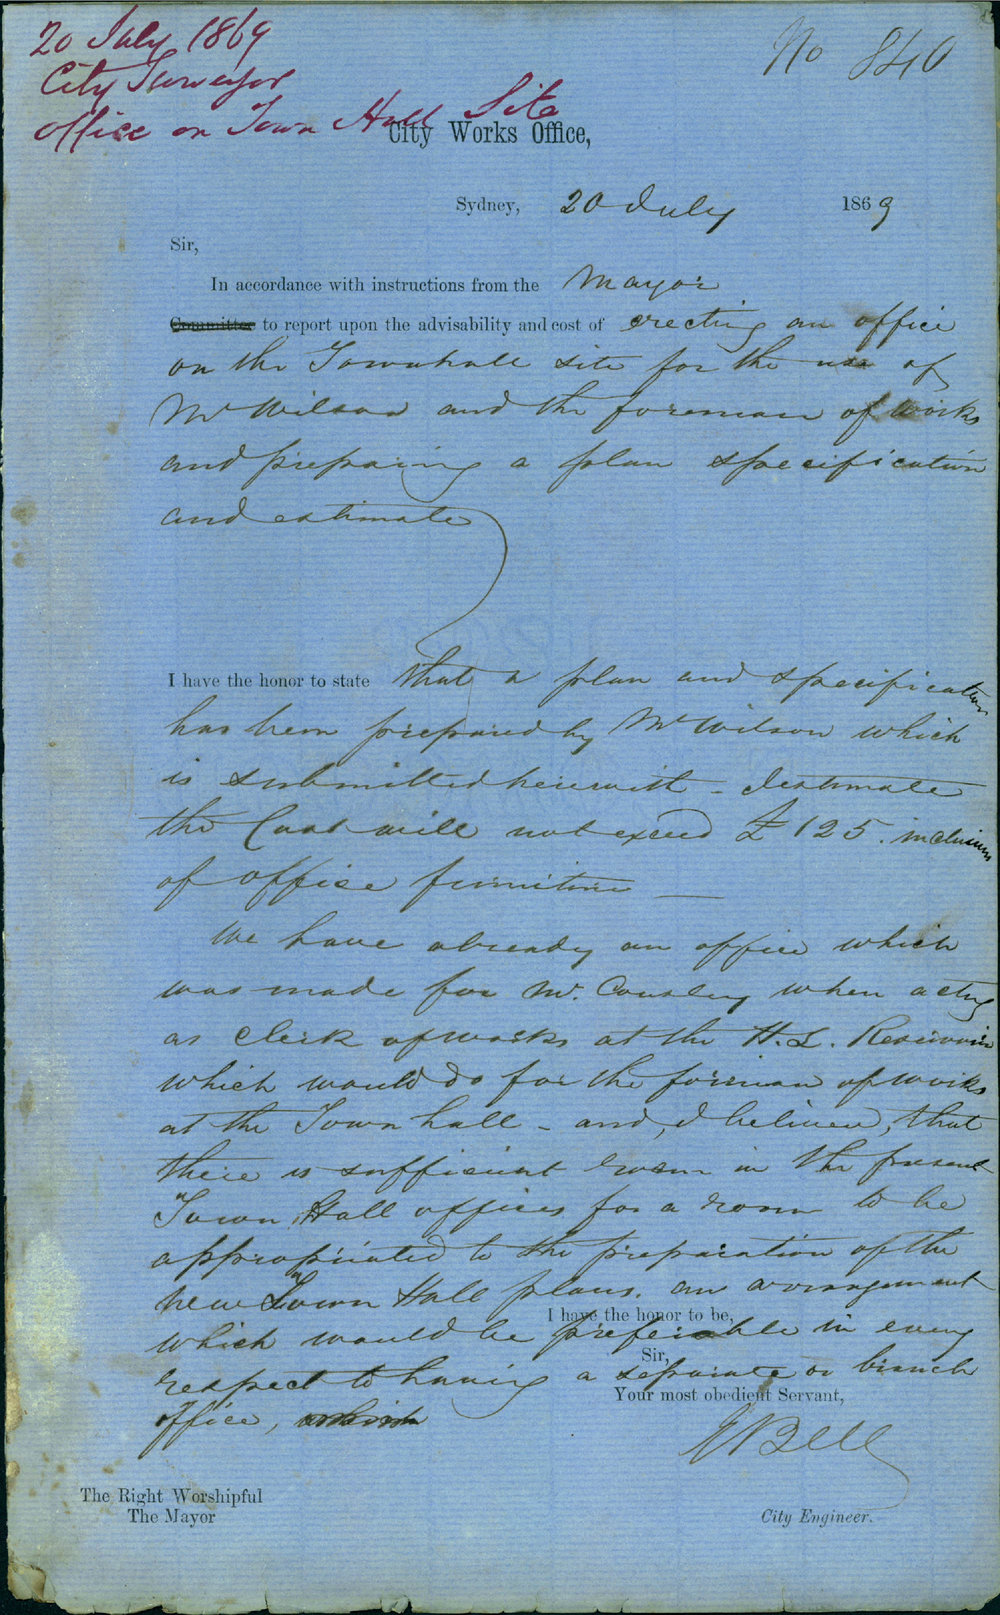 20 July 1869
No 840
City Surveyor
Office on Town Hall Site
City Works Office,
Sydney, 20 July 1869
Sir,
In accordance with instructions from the Mayor
Committee to report upon the advisability and cost of erecting an office
on the Townhall site for the use of
Mr Wilson and the foreman of works
and preparing a plan specification
and estimate
I have the honor to state that a plan and specification
has been prepared by Mr Wilson which
is submitted herewith - I estimate
the Cost will not exceed £125. inclusive
of office furniture —
We have already an office which
was made for Mr. Cousley when acting
as Clerk of works at the H.L. Reservoir
which would do for the foreman of works
at the Town hall - and, I believe, that
there is sufficient room in the present
Town Hall offices for a room to be
appropriated to the preparation of the
new Town Hall plans. an arrangement
I have the honor to be,
which would be preferable in every
Sir,
respect to having a separate or branch
Your most obedient Servant,
office,
E Bell
The Right Worshipful
The Mayor
City Engineer.